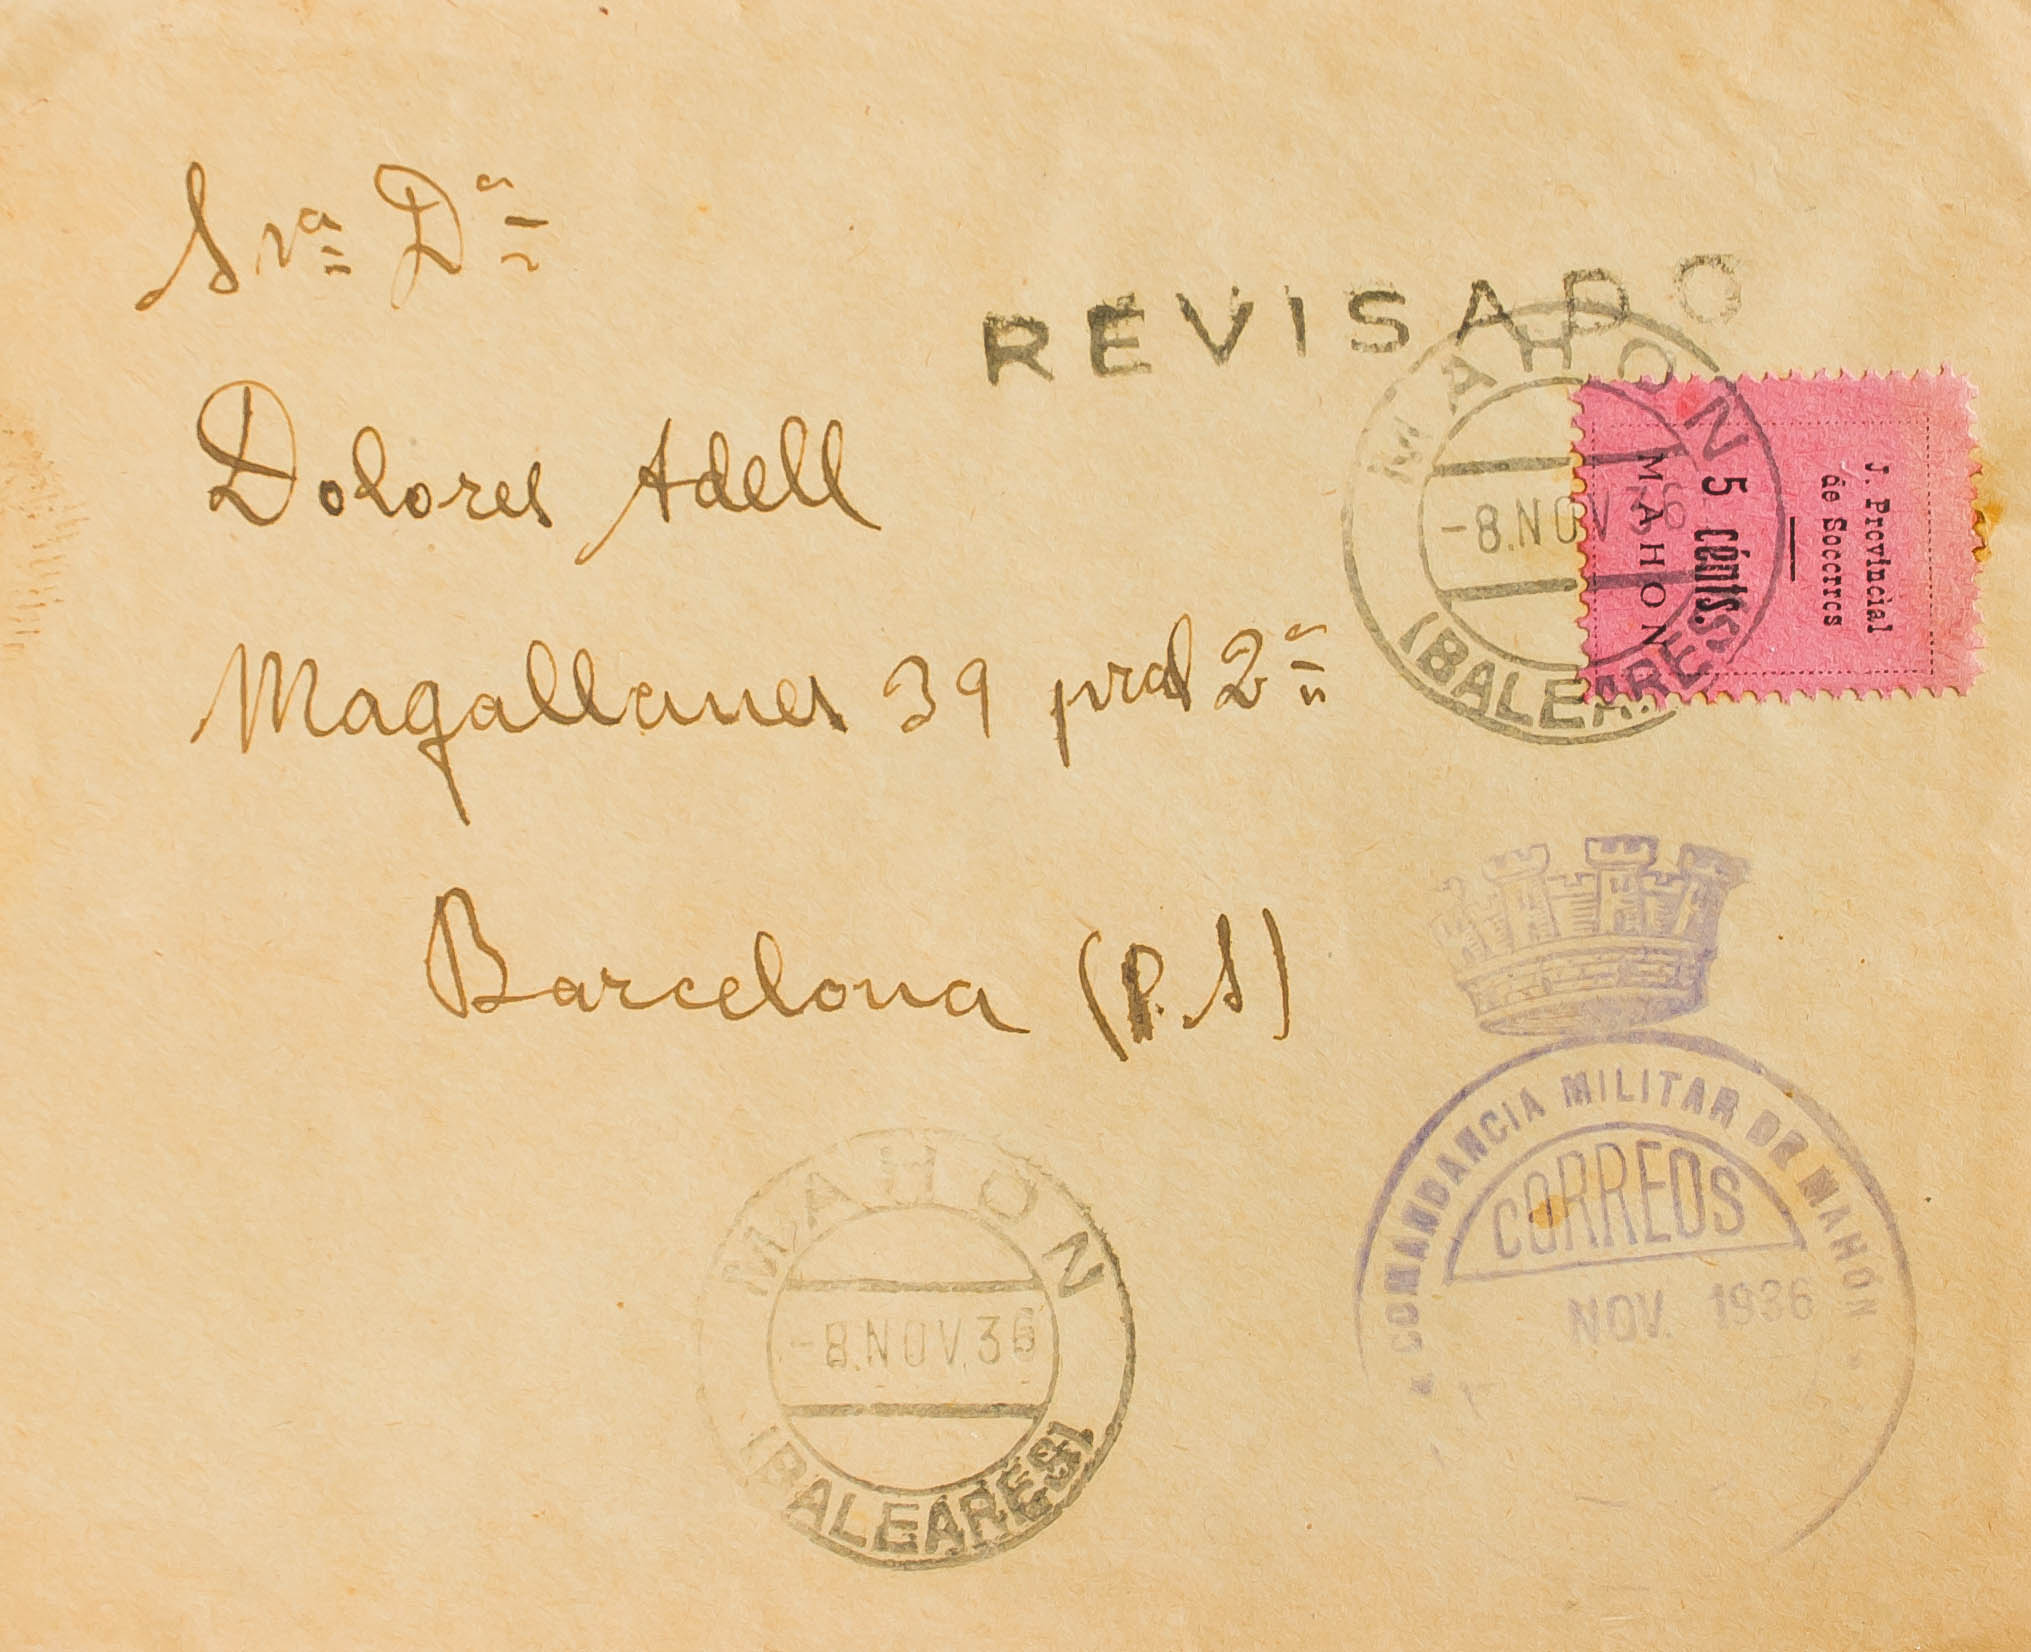 Sra Da
REVISADO
Dolores Adell
MAHON
-8.NOV.36
(BALEARES)
J. Provincial
de Socorros
5 cénts.
MAHON
Magallanes 39 pral 2a
Barcelona (P.S)
COMANDANCIA MILITAR DE MAHÓN
CORREOS
NOV. 1936
MAHON
-8.NOV.36
(BALEARES)